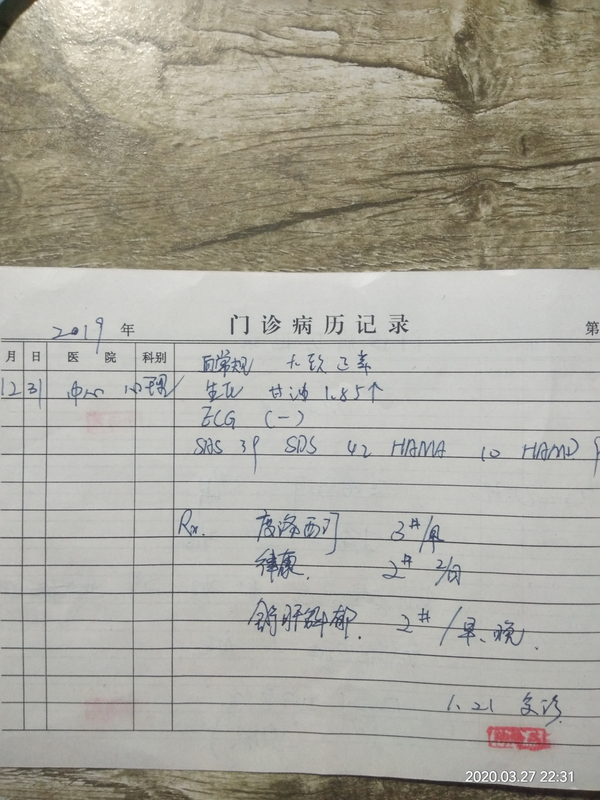 2019 年 门诊病历记录 第
月 日 医 院 科别 血常规 大致正常
12 31 中心 心理 生化 甘油 1.85↑
ECG (—)
SAS 39 SDS 42 HAMA 10 HAMD 9
Rx. 度洛西汀 3# /早
律康. 2# 2/日
舒肝解郁. 2# / 早、晚.
1.21 复诊.
2020.03.27 22:31